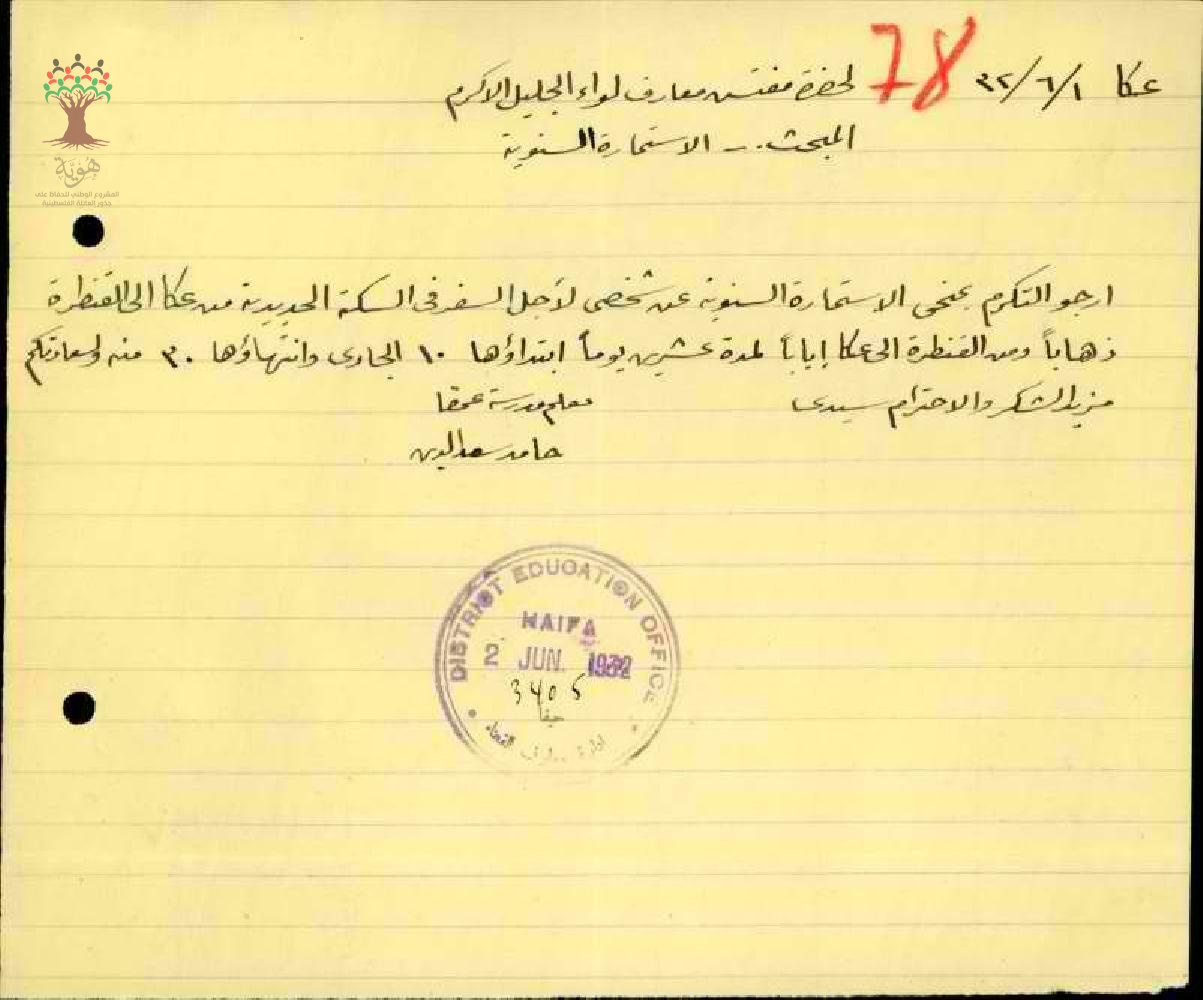 عكا ٣٢/٦/١
78
لحضرة مفتش معارف لواء الجليل الاكرم
المبحث .- الاستمارة السنوية
ارجو التكرم بمنحى الاستمارة السنوية عن شخصى لأجل السفر فى السكة الحديدية من عكا الى القنطرة
ذهاباً ومن القنطرة الى عكا إياباً لمدة عشرين يوماً ابتداؤها ١٠ الجارى وانتهاؤها ٣٠ منه ولسعادتكم
مزيد الشكر والاحترام سيدى
معلم مدرسة عمقا
حامد سعد الدين
DISTRICT EDUCATION OFFICE
HAIFA
2 JUN. 1932
3405
حيفا
ادارة معارف القضاء
هُوِيَّة
المشروع الوطني للحفاظ على
جذور العائلة الفلسطينية